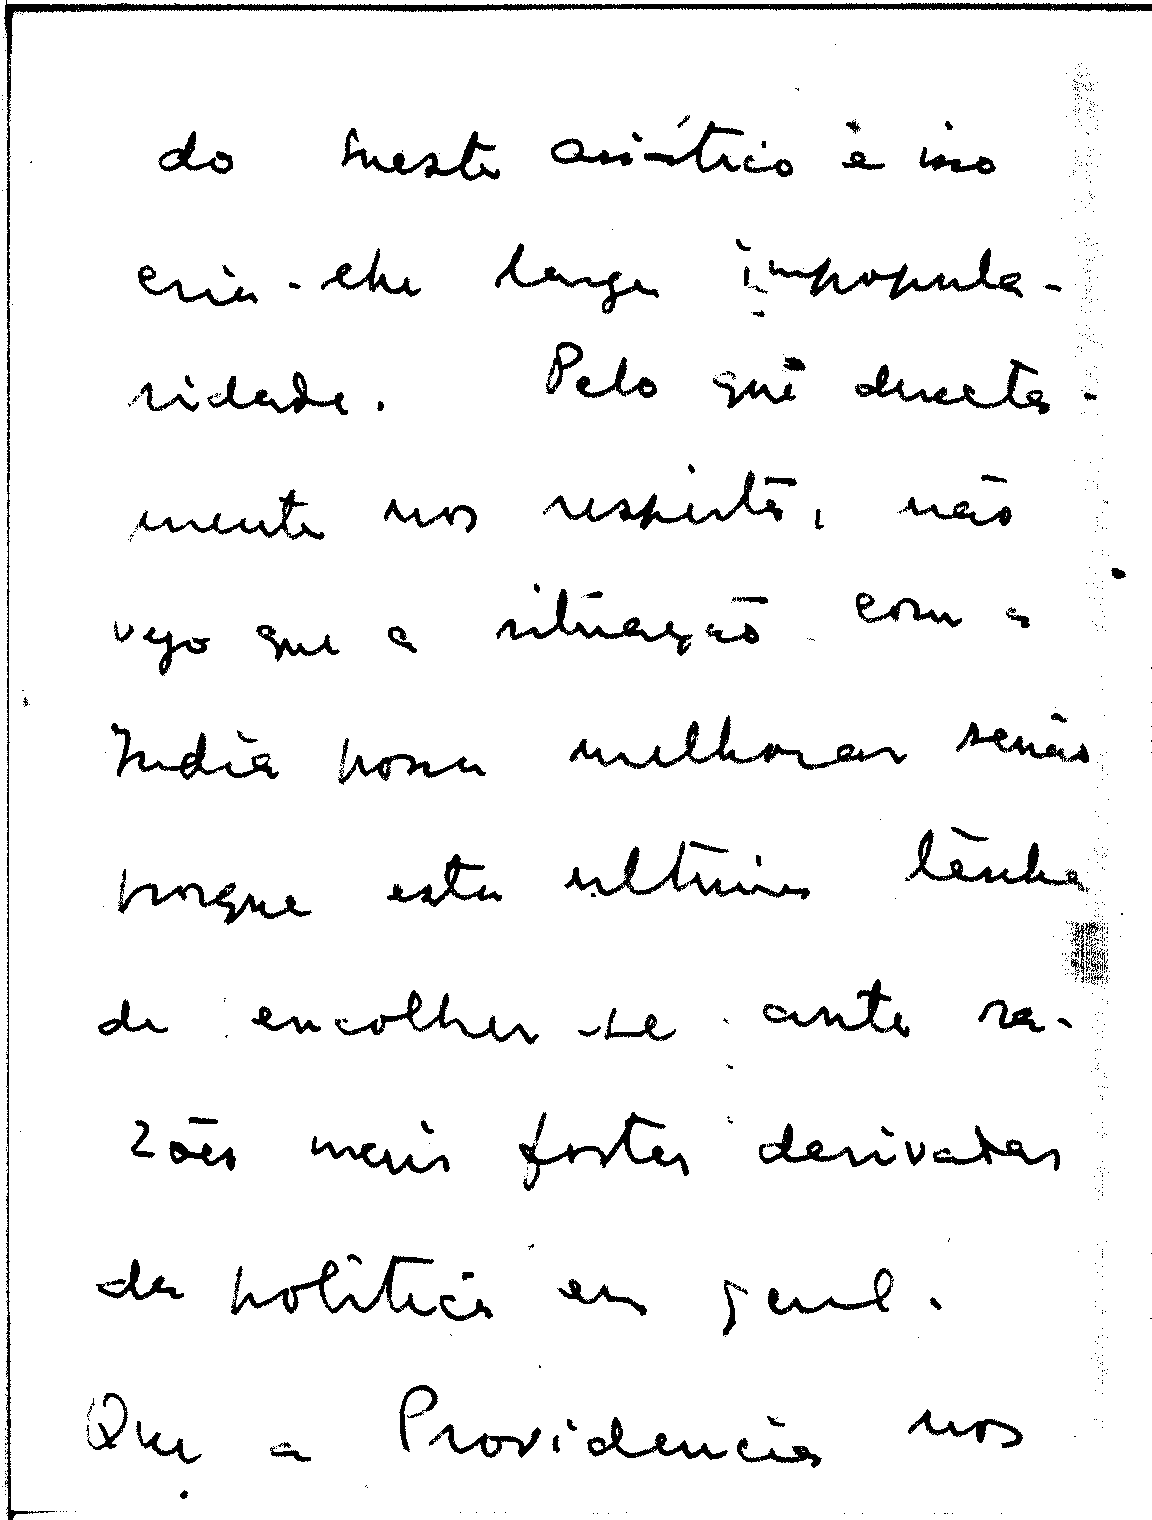 do sueste asiático e isso
cria-lhe larga impopula-
ridade. Pelo que directa-
mente nos respeita, não
vejo que a situação com a
India possa melhorar senão
porque esta ultima tenha
de encolher-se ante ra-
zões mais fortes derivadas
da politica em geral.
Que a Providencia nos